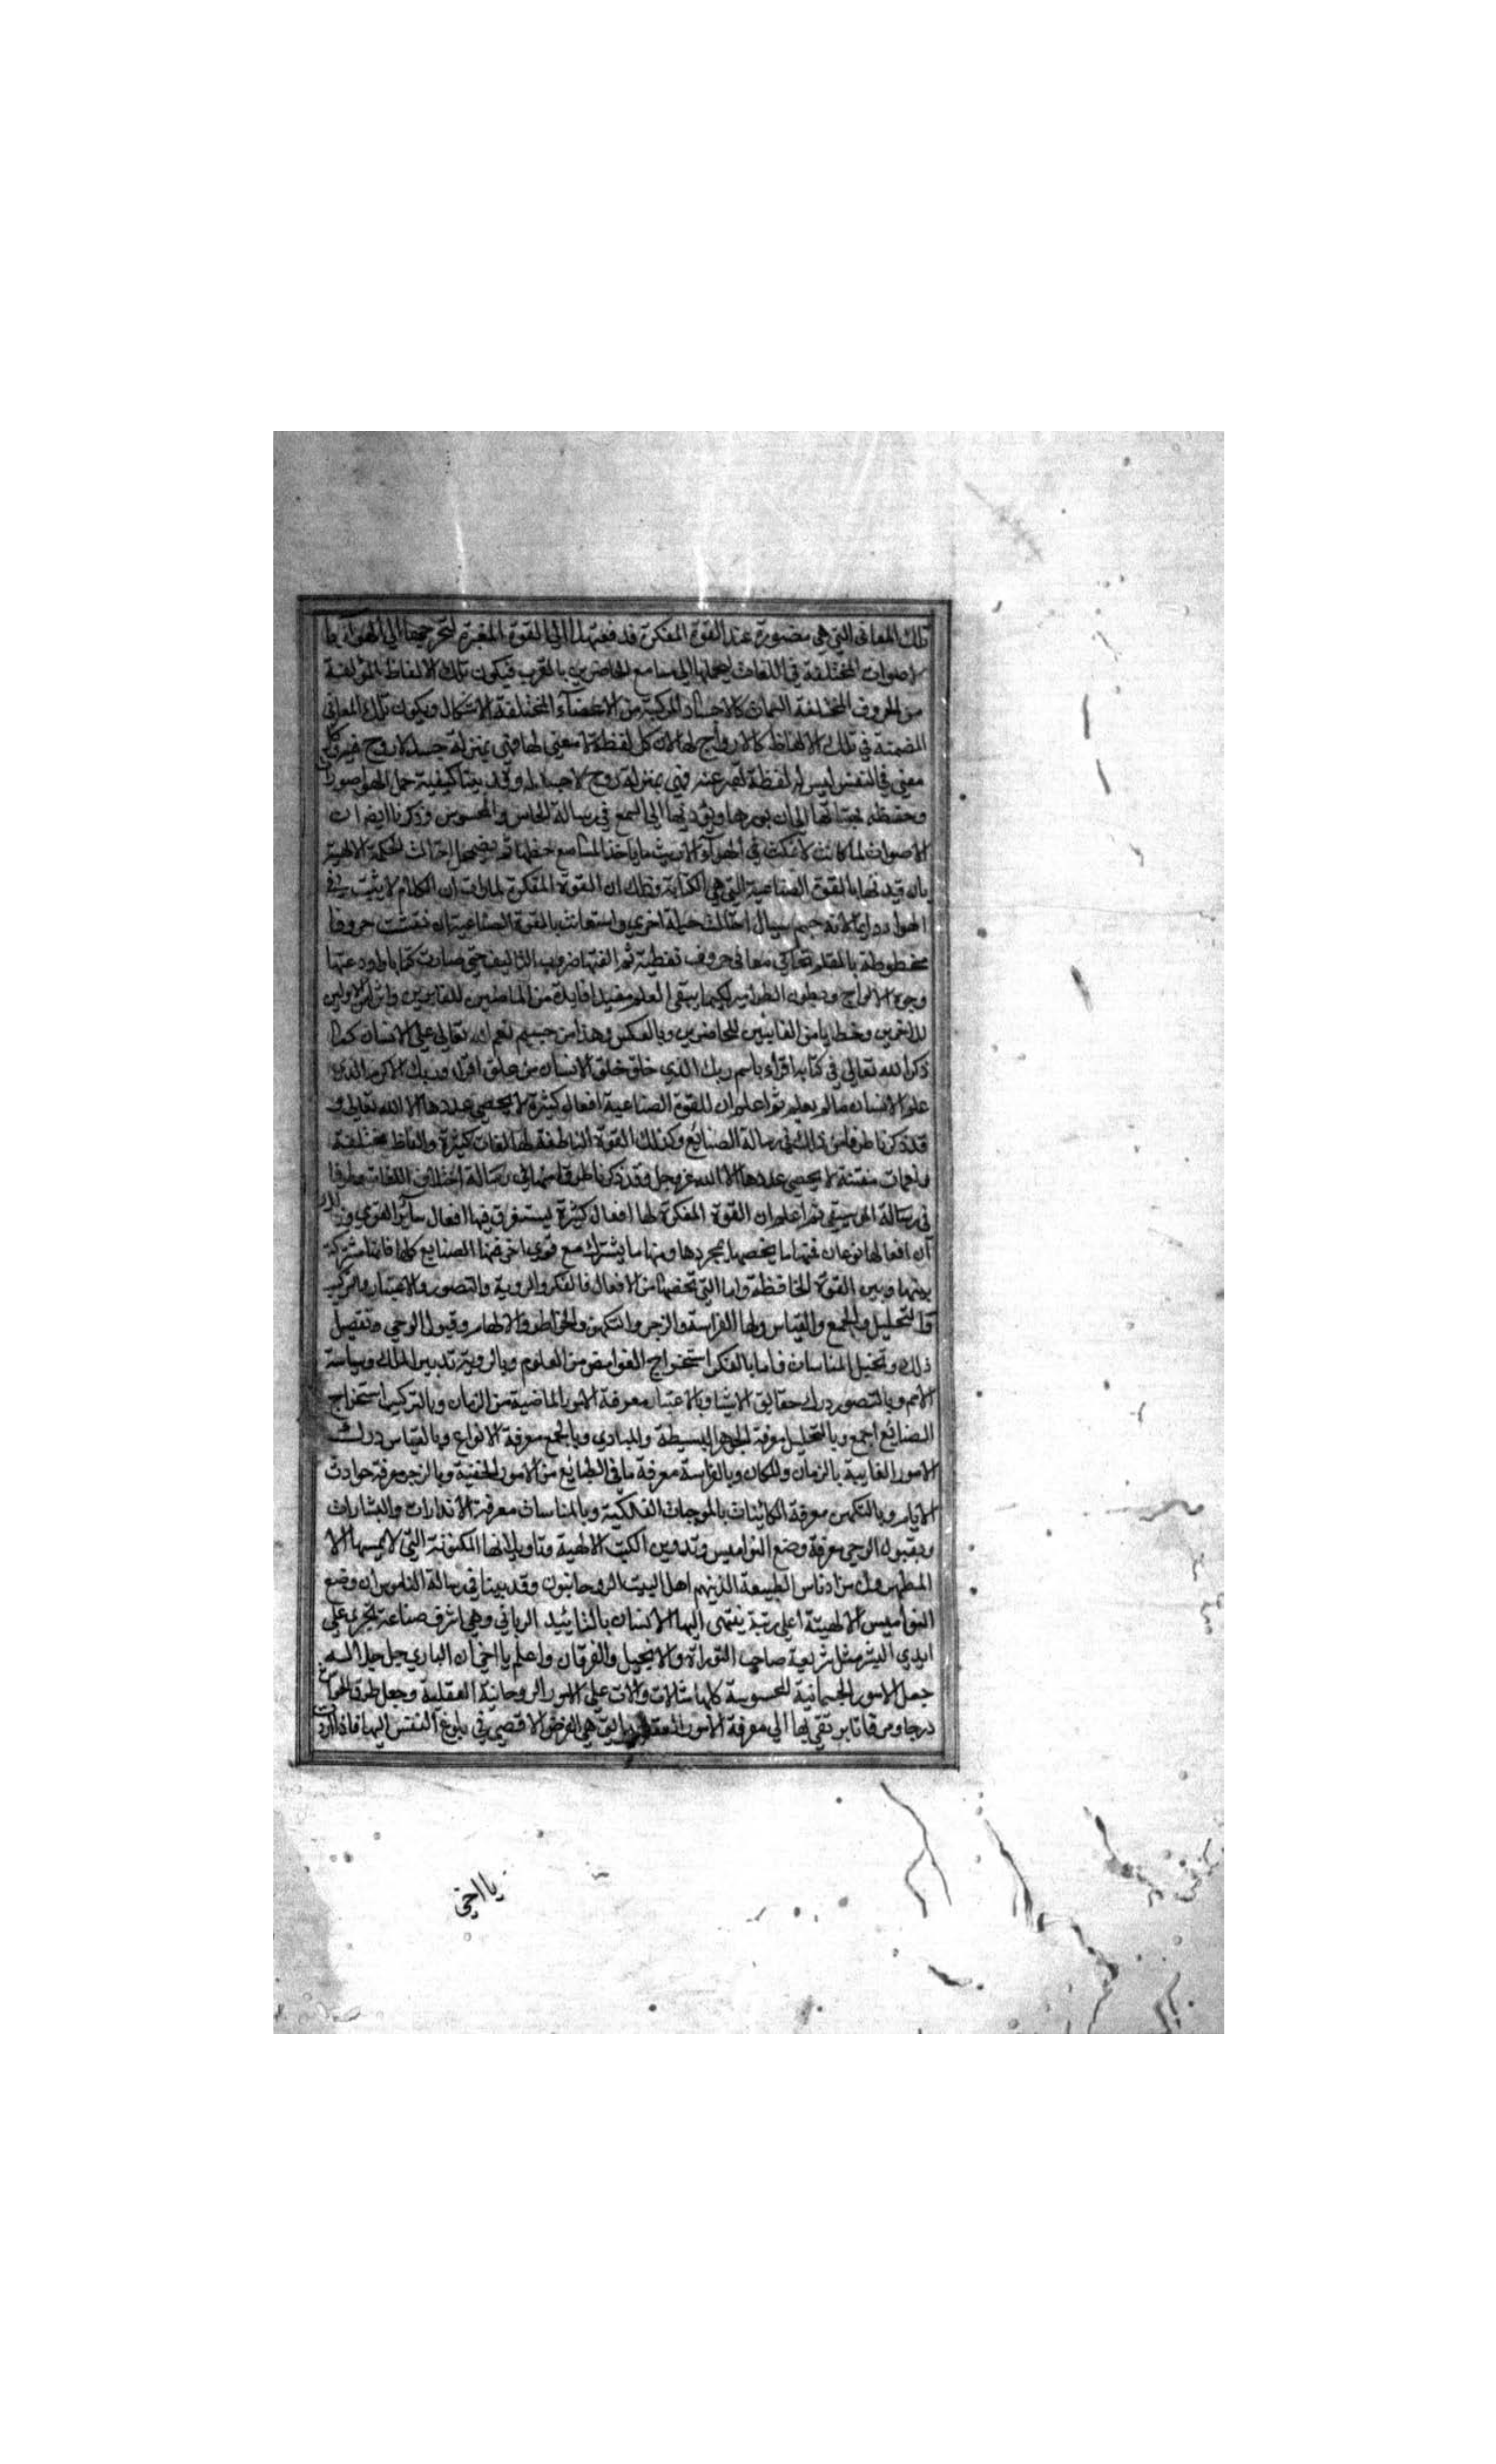 تلك المعانى التي هى مصورة عند القوة المفكرة فدفعتها الى القوة المعبرة لتخرجها الى الهوآء با
لاصوات المختلفة في اللغات ليحملها الى مسامع الحاضرين بالقرب فيكون تلك الالفاظ المؤلفة
من الحروف المختلفة السمات كالاجساد المركبة من الاعضآء المختلفة الاشكال ويكون تلك المعانى
المضمنة في تلك الالفاظ كالارواح لها لان كل لفظة لا معنى لها فهي بمنزلة جسد لا روح فيه وكل
معنى في النفس ليس له لفظة تعبر عنه فهي بمنزلة روح لا جسد له وقد بينا كيفية حمل الهوا صورات
وحفظه بهيئاتها الى ان يوردها ويؤديها الى السمع في رسالة الحاس والمحسوس وذكرنا ايضا ان
الاصوات لما كانت لا تمكث في الهوآء الا ريث ما ياخذ المسامع حظها ثم يضمحل احتالت الحكمة الالهية
بان قيدتها بالقوة الصناعية التي هي الكتابة وذلك ان القوة المفكرة لما رات ان الكلام لا يثبت في
الهوا دواما لانه جسم سيال احتالت حيلة اخرى واستعانت بالقوة الصناعية ان نقشت حروفا
مخطوطة بالقلم تحاكى معانى حروف لفظية ثم الفتها ضروب التاليف حتى صارت كتابا واودعتها
وجوه الالواح وبطون الطوامير لكيما يبقى العلم مفيدا فايدة من الماضين للغابرين واثر الاولين
للاخرين وخطابا من الغايبين للحاضرين وبالعكس وهذا من جسيم نعم الله تعالى على الانسان كما
ذكر الله تعالى في كتابه اقراء باسم ربك الذي خلق خلق الانسان من علق اقرا وربك الاكرم الذي
علم الانسان ما لم يعلم ثم اعلم ان للقوة الصناعية افعال كثيرة لا يحصي عددها الا الله تعالى و
قد ذكرنا طرفا من ذلك في رسالة الصنايع وكذلك القوة الناطقة لها لغات كثيرة والفاظ مختلفة
ونغمات مفتنة لا يحصى عددها الا الله عز وجل وقد ذكرنا طرفا منها في رسالة اختلاف اللغات وطرفا
في رسالة الموسيقى ثم اعلم ان القوة المفكرة لها افعال كثيرة يستغرق فيها افعال سآير القوي وذلك
ان افعالها نوعان فمنها ما يخصها بمجردها ومنها ما يشترك مع قوى اخر فمنها الصنايع كلها فانها مشتركة
بينها وبين القوة الحافظة واما التي تخصها من الافعال فالفكر والروية والتصور والاعتبار والتركيب
والتحليل والجمع والقياس ولها الفراسة والزجر والتكهن والخواطر والالهام وقبول الوحي وتفصيل
ذلك وتخيل المنامات فاما بالفكر استخراج الغوامض من العلوم وبالروية تدبير الملك وسياسة
الامم وبالتصور درك حقايق الاشيا وبالاعتبار معرفة الامور الماضية من الزمان وبالتركيب استخراج
الصنايع اجمع وبالتحليل معرفة الجواهر البسيطة والمبادي وبالجمع معرفة الانواع وبالقياس درك
الامور الغايبة بالزمان والمكان وبالفراسة معرفة ما في الطبائع من الامور الخفية وبالزجر معرفة حوادث
الايام وبالتكهن معرفة الكاينات بالموجبات الفلكية وبالمنامات معرفة الانذارات والبشارات
وبقبول الوحي معرفة وضع النواميس وتدوين الكتب الالهية وتاويلاتها المكنونة التي لا يمسها الا
المطهرون من ادناس الطبيعة الذين هم اهل البيت الروحانيون وقد بينا في رسالة الناموس ان وضع
النواميس الالهية اعلى رتبة ينتهى اليها الانسان بالتائيد الرباني وهي اشرف صناعة تجرى على
ايدي البشر مثل شريعة صاحب التوراة والانجيل والفرقان واعلم يا اخى ان الباري جل جلاله
جعل الامور الجسمانية المحسوسة كلها مثالات ودلالات على الامور الروحانية العقلية وجعل طرق الحواس
درجا ومرقاتا يرتقى بها الى معرفة الامور العقلية التى هي الغرض الاقصى في بلوغ النفس اليها فاذا اردت
يا اخى